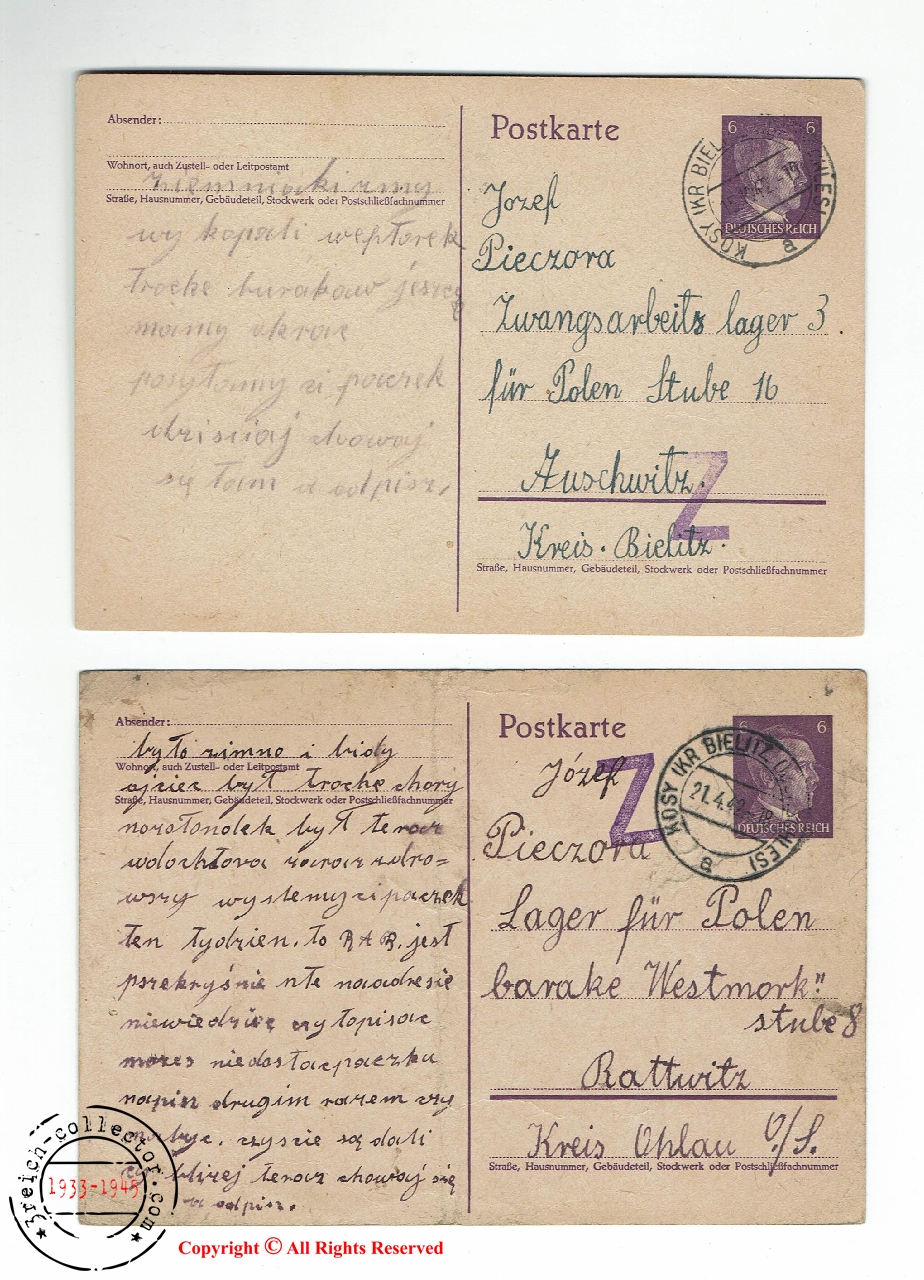 Absender:
Wohnort, auch Zustell- oder Leitpostamt
Straße, Hausnummer, Gebäudeteil, Stockwerk oder Postschließfachnummer
wy kopali wepłorek
troche burakow jeszcze
mamy
posyłomy ci paczek
dzisiiaj chowaj
się tam a odpisz,
Postkarte
6 6
DEUTSCHES REICH
KOSY (KR BIEL
HLESI
a
Jozef
Pieczora
Zwangsarbeits lager 3.
für Polen Stube 16
Auschwitz.
Z
Kreis. Bielitz.
Straße, Hausnummer, Gebäudeteil, Stockwerk oder Postschließfachnummer
Absender:
było zimno i bidy
Wohnort, auch Zustell- oder Leitpostamt
ojciec był troche chory
Straße, Hausnummer, Gebäudeteil, Stockwerk oder Postschließfachnummer
był teraz
zdro=
wszy paczek
ten tydzien. to R A R. jest
nte naadresie
niewiedzice czytopisac
mozes niedostacpaczku
napisz drugim razem czy
czyscie są dali
blizej teraz chowaj się
a odpisz.
Postkarte
6 6
DEUTSCHES REICH
KOSY (KR BIELITZ
HLESI
21.4.42
a
Z
Józef
Pieczora
Lager für Polen
barake Westmork"
stube 8
Rattwitz
Kreis Ohlau O/S.
Straße, Hausnummer, Gebäudeteil, Stockwerk oder Postschließfachnummer
3reich-collector.com
1933-1945
Copyright © All Rights Reserved